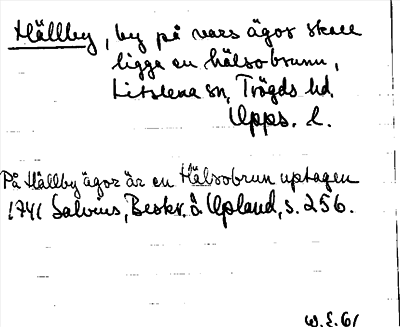 Hällby, by på vars ägor skall
ligga en hälsobrunn,
Litslena sn, Trögds hd.
Upps. l.
På Hällby ägor är en Hälsobrun uptagen
1741 Salvius, Beskr. å Upland, s. 256.
W.E. 61